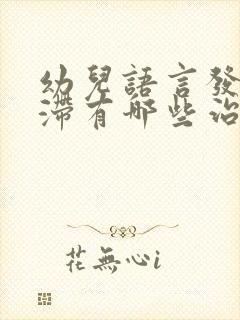 幼兒語言發
滯有哪些治
花無心i